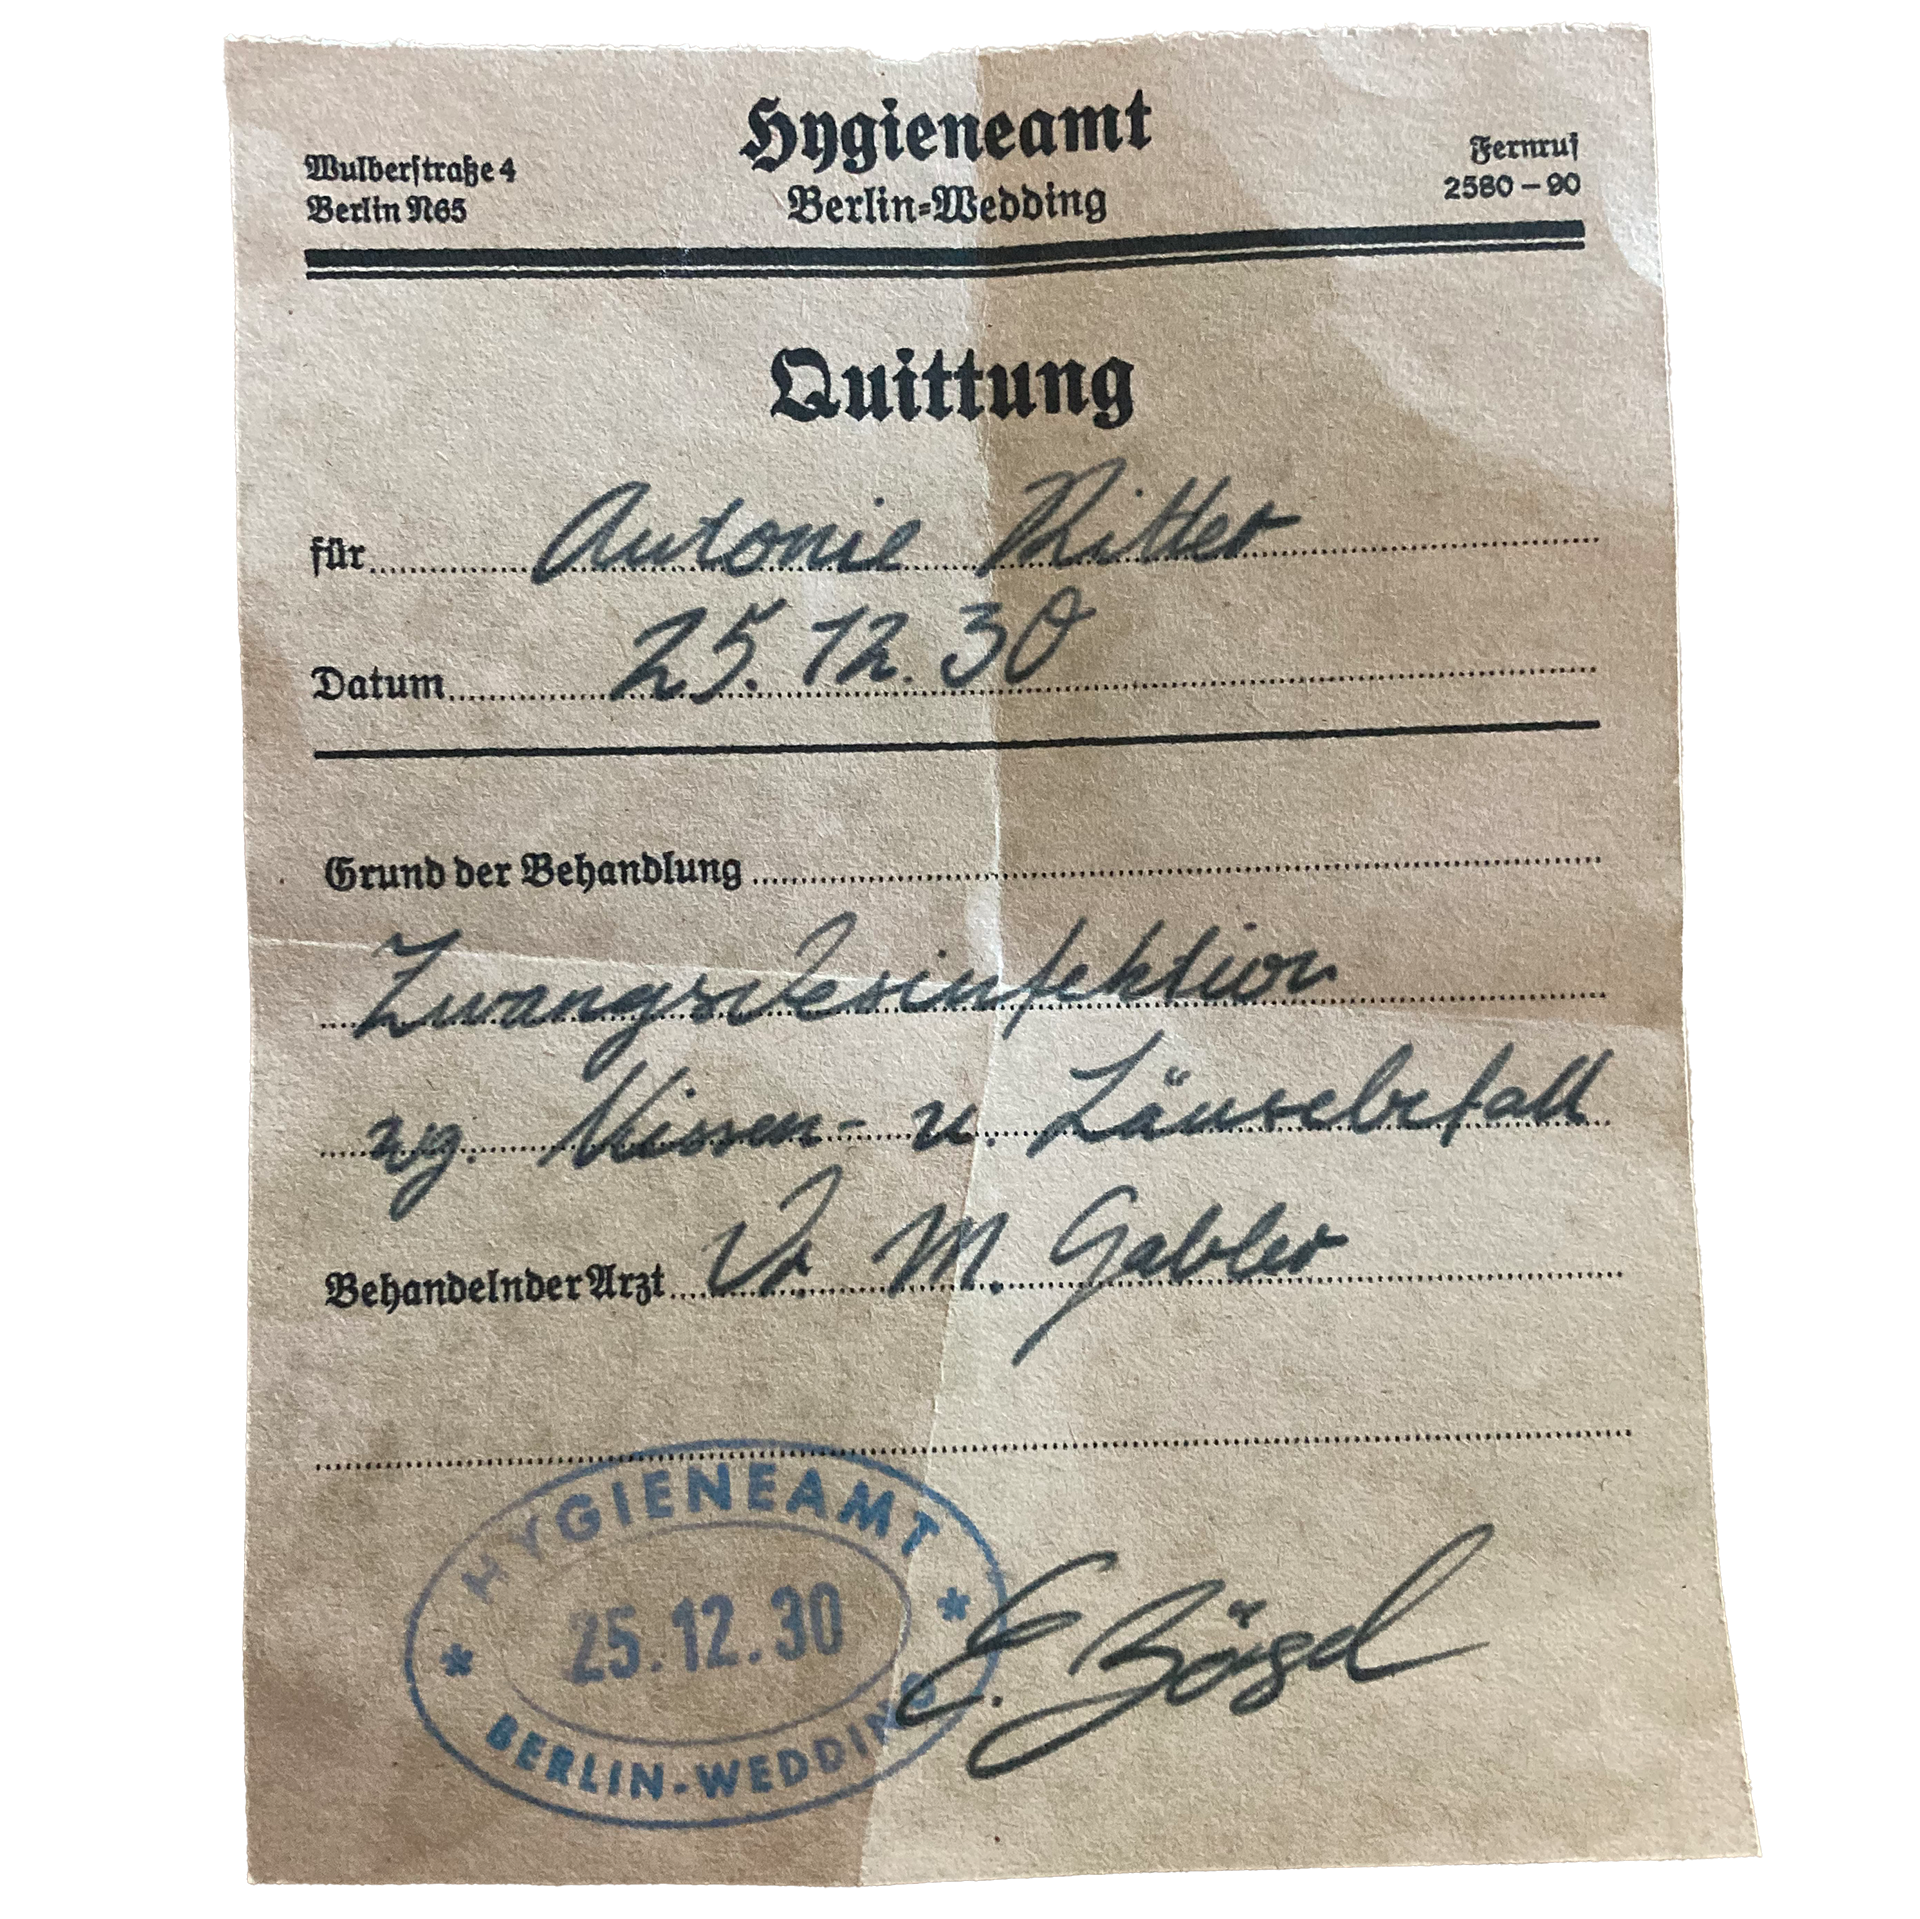 Hygieneamt
Berlin-Wedding
Wulberstraße 4
Berlin N65
Fernruf
2580 – 90
Quittung
für Antonie Ritter
Datum 25.12.30
Grund der Behandlung
Zwangsdesinfektion
wg. Nissen- u. Läusebefall
Behandelnder Arzt Dr M. Gabler
HYGIENEAMT
25.12.30
BERLIN-WEDDING
E.